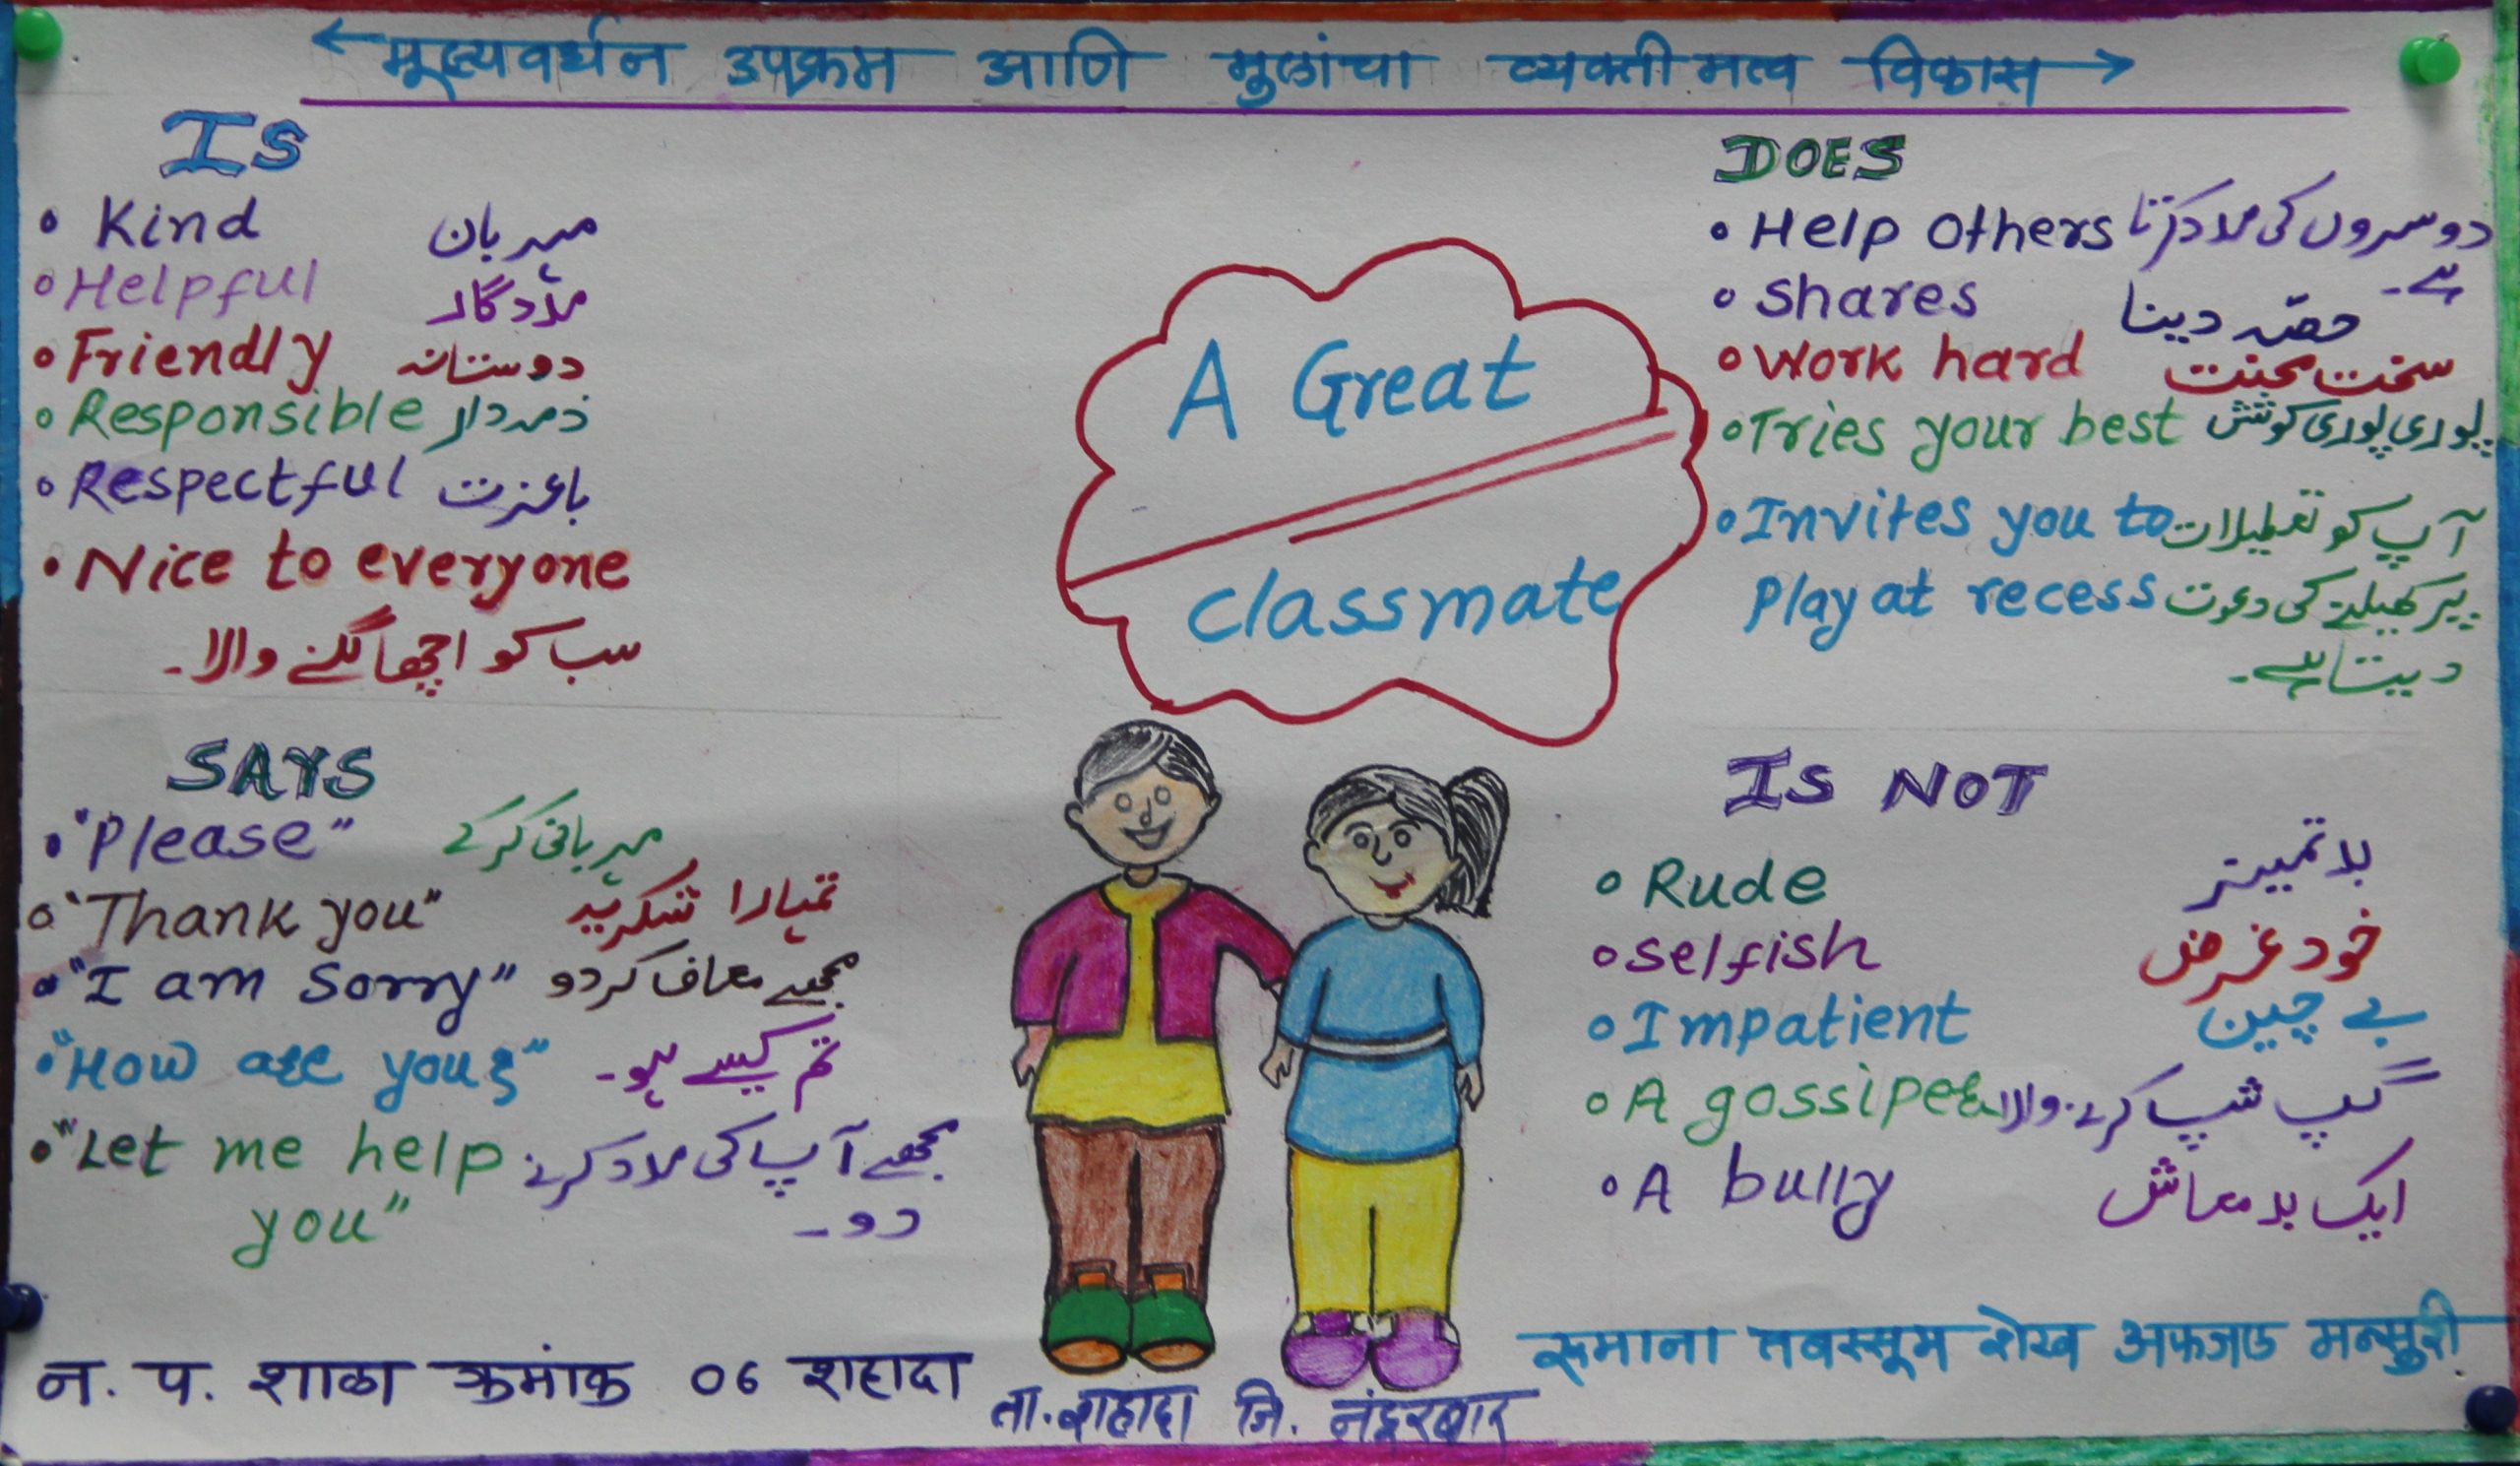 ← मूल्यवर्धन उपक्रम आणि मुलांचा व्यक्तीमत्व विकास →
IS
• Kind مہربان
• Helpful مددگار
• Friendly دوستانہ
• Responsible ذمہ دار
• Respectful باعزت
• Nice to everyone
سب کو اچھا لگنے والا۔
A Great
classmate
DOES
• Help others دوسروں کی مدد کرتا
ہے۔
• Shares حصّہ دینا
• Work hard سخت محنت
• Tries your best پوری پوری کوشش
• Invites you to آپ کو تعطیلات
Play at recess پر کھیلنے کی دعوت
دیتا ہے۔
SAYS
• "Please" مہربانی کرکے
• "Thank you" تمہارا شکریہ
• "I am Sorry" مجھے معاف کردو
• "How are you?" تم کیسے ہو۔
• "Let me help مجھے آپ کی مدد کرنے
you" دو۔
IS NOT
• Rude بدتمیز
• selfish خود غرض
• Impatient بے چین
• A gossiper گپ شپ کرنے والا
• A bully ایک بدمعاش
न. प. शाळा क्रमांक 06 शहादा
ता. शहादा जि. नंदुरबार
रुमाना तबस्सूम शेख अफजल मन्सुरी